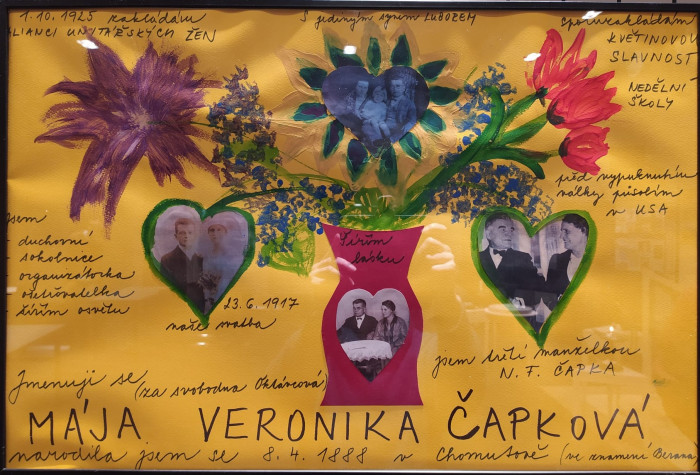 1. 10. 1925 zakládám
ALIANCI UNITÁŘSKÝCH ŽEN
S jediným synem LUBOREM
spoluzakládám
KVĚTINOVOU
SLAVNOST
NEDĚLNÍ
ŠKOLY
před vypuknutím
války působím
v USA
jsem
- duchovní
- sokolnice
- organizátorka
- ošetřovatelka
- šířím osvětu
Šířím
lásku
23. 6. 1917
naše svatba
jsem třetí manželkou
N. F. ČAPKA
Jmenuji se (za svobodna Oktávcová)
MÁJA VERONIKA ČAPKOVÁ
narodila jsem se 8. 4. 1888 v Chomutově (ve znamení Berana